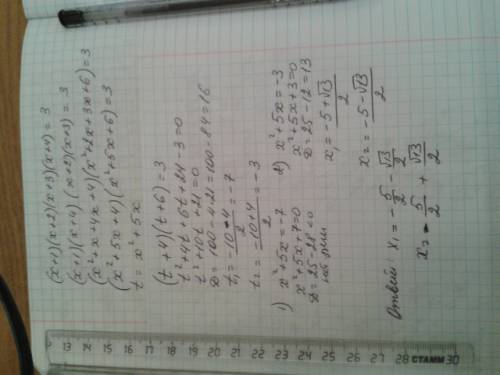 (x+1)(x+2)(x+3)(x+4) = 3
(x+1)(x+4)(x+2)(x+3) = 3
(x²+x+4x+4)(x²+2x+3x+6) = 3
(x²+5x+4)(x²+5x+6) = 3
t = x²+5x
(t+4)(t+6) = 3
t²+4t+6t+24-3=0
t²+10t+21=0
D = 100-4·21=100-84=16
t₁ = (-10-4)/2 = -7
t₂ = (-10+4)/2 = -3
1) x²+5x=-7
x²+5x+7=0
D=25-28<0
2) x²+5x=-3
x²+5x+3=0
D=25-12=13
x₁ = (-5+√13)/2
x₂ = (-5-√13)/2
Ответ: x₁ = -5/2 - √13/2
x₂ = -5/2 + √13/2
13 14 15 16 17 18 19 20 21 22 23 24 25 26 27 28 СТАММ 30